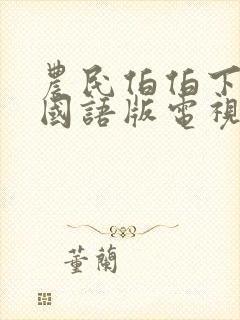 農民伯伯下
國語版電視
董蘭